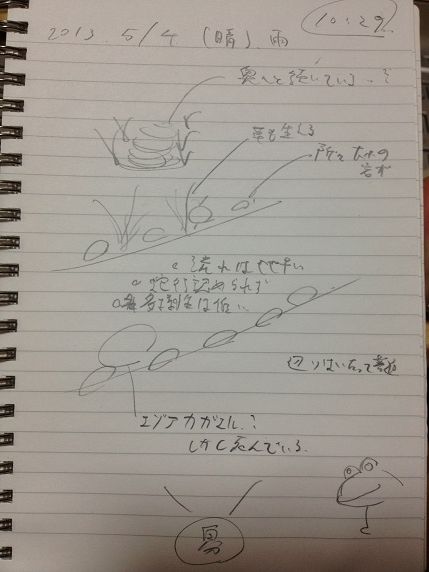 10:29
2013. 5/4 (晴). 雨
奥へと続いている..?
草も生える
所々大小の
岩が
流れは
蛇行認められず
は低い
辺りはいたって
エゾアカガエル.?
しかし死んでいる.